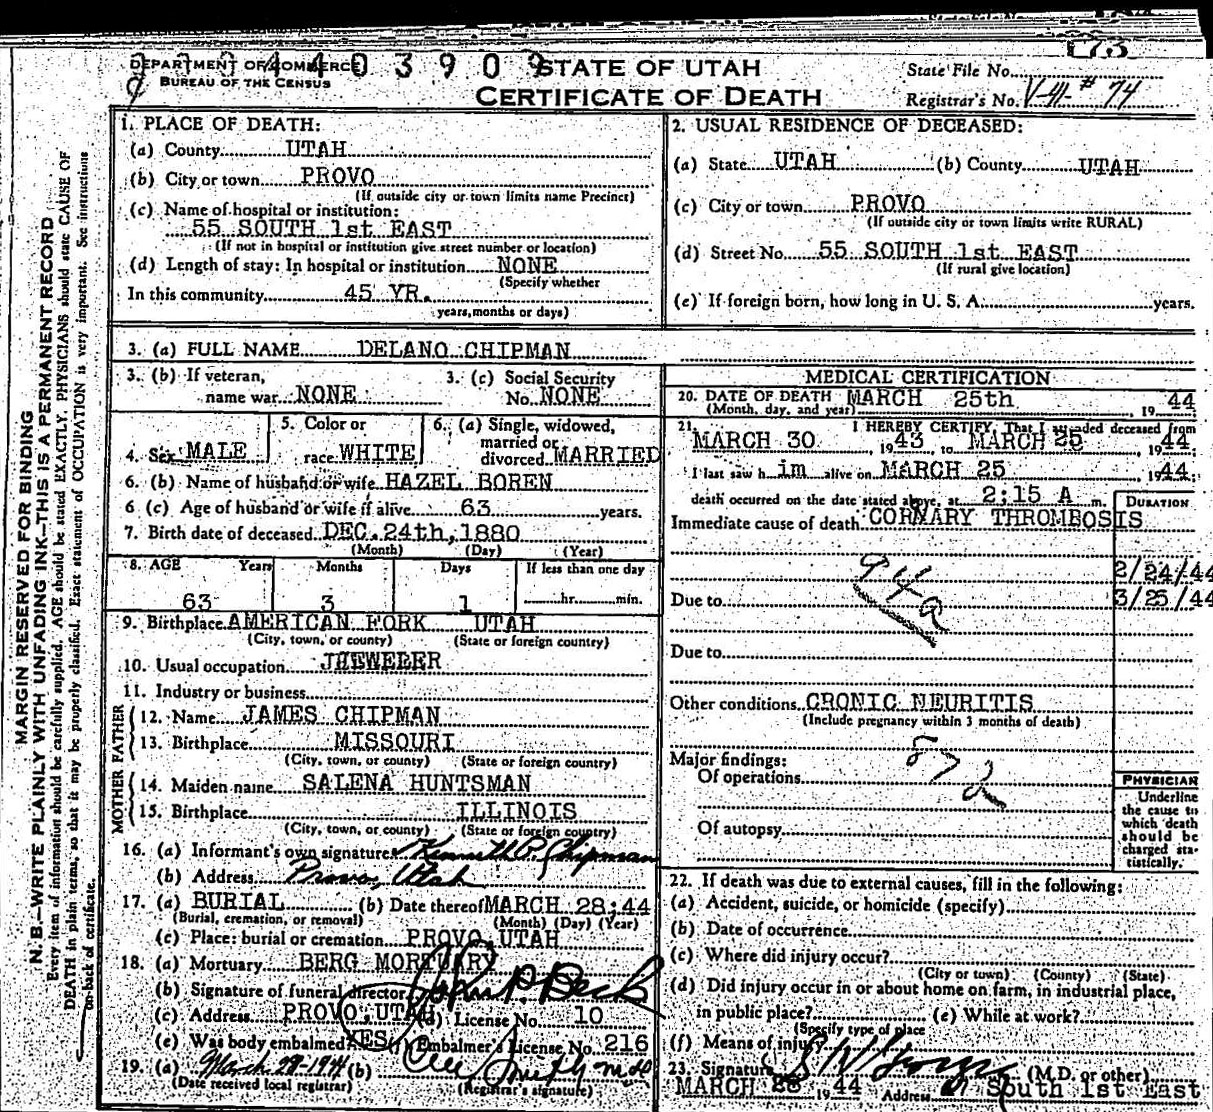 DEPARTMENT OF COMMERCE
BUREAU OF THE CENSUS
4403909
STATE OF UTAH
CERTIFICATE OF DEATH
State File No.
Registrar's No. V-41- # 74
MARGIN RESERVED FOR BINDING
N. B.—WRITE PLAINLY WITH UNFADING INK—THIS IS A PERMANENT RECORD
Every item of information should be carefully supplied. AGE should be stated EXACTLY. PHYSICIANS should state CAUSE OF
DEATH in plain terms, so that it may be properly classified. Exact statement of OCCUPATION is very important. See instructions
on back of certificate.
1. PLACE OF DEATH:
(a) County UTAH
(b) City or town PROVO
(If outside city or town limits name Precinct)
(c) Name of hospital or institution:
55 SOUTH 1st EAST
(If not in hospital or institution give street number or location)
(d) Length of stay: In hospital or institution NONE
(Specify whether
In this community 45 YR.
years, months or days)
2. USUAL RESIDENCE OF DECEASED:
(a) State UTAH (b) County UTAH
(c) City or town PROVO
(If outside city or town limits write RURAL)
(d) Street No. 55 SOUTH 1st EAST
(If rural give location)
(e) If foreign born, how long in U. S. A. years.
3. (a) FULL NAME DELANO CHIPMAN
3. (b) If veteran, 3. (c) Social Security
name war NONE No. NONE
5. Color or 6. (a) Single, widowed,
married or
4. Sex MALE race WHITE divorced MARRIED
6. (b) Name of husband or wife HAZEL BOREN
6 (c) Age of husband or wife if alive 63 years.
7. Birth date of deceased DEC. 24th, 1880
(Month) (Day) (Year)
8. AGE Years Months Days If less than one day
63 3 1 hr. min.
9. Birthplace AMERICAN FORK UTAH
(City, town, or county) (State or foreign country)
10. Usual occupation JHEWELER
11. Industry or business
FATHER
12. Name JAMES CHIPMAN
13. Birthplace MISSOURI
(City, town, or county) (State or foreign country)
MOTHER
14. Maiden name SALENA HUNTSMAN
15. Birthplace ILLINOIS
(City, town, or county) (State or foreign country)
16. (a) Informant's own signature Kenneth P. Chipman
(b) Address Provo, Utah
17. (a) BURIAL (b) Date thereof MARCH 28:44
(Burial, cremation, or removal) (Month) (Day) (Year)
(c) Place: burial or cremation PROVO, UTAH
18. (a) Mortuary BERG MORTUARY
(b) Signature of funeral director
(c) Address PROVO, UTAH (d) License No. 10
(e) Was body embalmed? YES (f) Embalmer's License No. 216
19. (a) March 28-1944 (b)
(Date received local registrar) (Registrar's signature)
MEDICAL CERTIFICATION
20. DATE OF DEATH MARCH 25th
(Month, day, and year) , 19 44
21. I HEREBY CERTIFY, That I attended deceased from
MARCH 30 , 19 43 to MARCH 25 , 19 44;
I last saw h im alive on MARCH 25 , 19 44;
death occurred on the date stated above, at 2:15 A m.
DURATION
Immediate cause of death CORNARY THROMBOSIS
2/24/44
Due to 3/25/44
94a
Due to
Other conditions CRONIC NEURITIS
(Include pregnancy within 3 months of death)
Major findings:
872
Of operations
Of autopsy
PHYSICIAN
Underline
the cause to
which death
should be
charged sta-
tistically.
22. If death was due to external causes, fill in the following:
(a) Accident, suicide, or homicide (specify)
(b) Date of occurrence
(c) Where did injury occur?
(City or town) (County) (State)
(d) Did injury occur in or about home on farm, in industrial place,
in public place? (e) While at work?
(Specify type of place
(f) Means of injury
23. Signature (M.D. or other)
MARCH 19 44 Address South 1st East